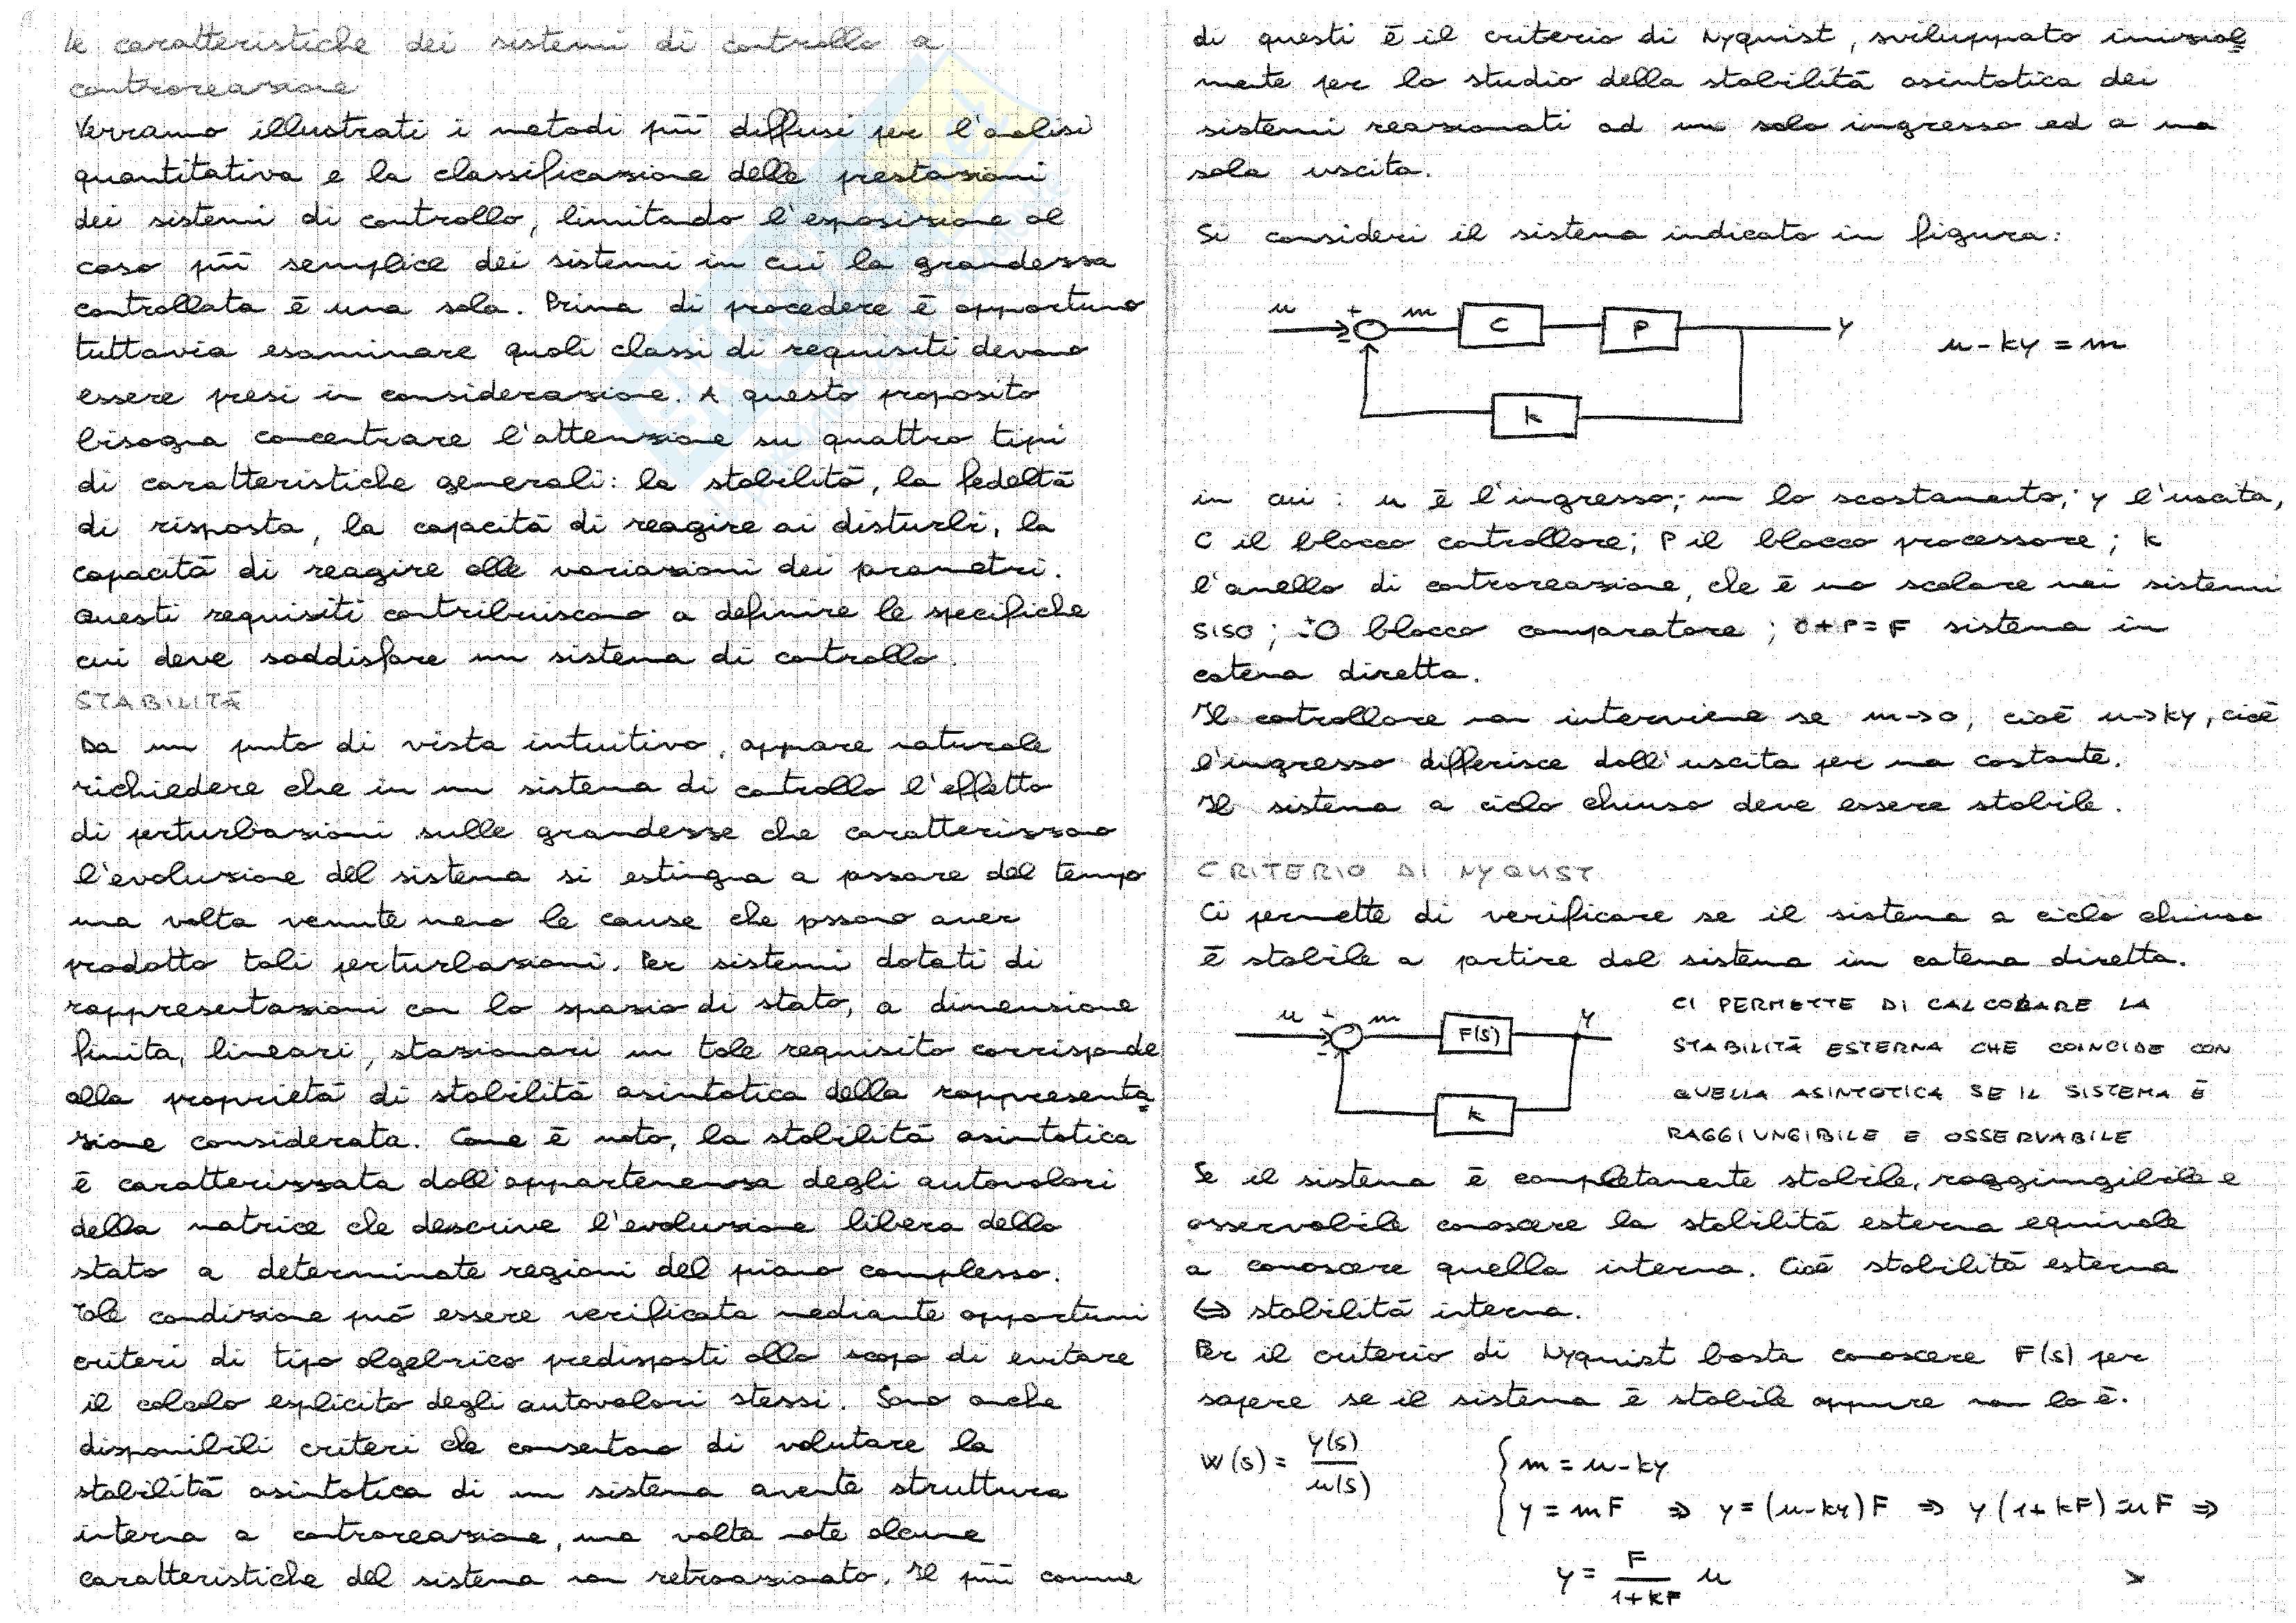 le caratteristiche dei sistemi di controllo a
controreazione
Verranno illustrati i metodi più diffusi per l'analisi
quantitativa e la classificazione delle prestazioni
dei sistemi di controllo, limitando l'esposizione al
caso più semplice dei sistemi in cui la grandezza
controllata è una sola. Prima di procedere è opportuno
tuttavia esaminare quali classi di requisiti devono
essere presi in considerazione. A questo proposito
bisogna concentrare l'attenzione su quattro tipi
di caratteristiche generali: la stabilità, la fedeltà
di risposta, la capacità di reagire ai disturbi, la
capacità di reagire alle variazioni dei parametri.
Questi requisiti contribuiscono a definire le specifiche
cui deve soddisfare un sistema di controllo.
STABILITÀ
Da un punto di vista intuitivo, appare naturale
richiedere che in un sistema di controllo l'effetto
di perturbazioni sulle grandezze che caratterizzano
l'evoluzione del sistema si estingua a passare del tempo
una volta venute meno le cause che possono aver
prodotto tali perturbazioni. Per sistemi dotati di
rappresentazioni con lo spazio di stato, a dimensione
finita, lineari, stazionari un tale requisito corrisponde
alla proprietà di stabilità asintotica della rappresenta=
zione considerata. Come è noto, la stabilità asintotica
è caratterizzata dall'appartenenza degli autovalori
della matrice che descrive l'evoluzione libera dello
stato a determinate regioni del piano complesso.
Tale condizione può essere verificata mediante opportuni
criteri di tipo algebrico predisposti allo scopo di evitare
il calcolo esplicito degli autovalori stessi. Sono anche
disponibili criteri che consentono di valutare la
stabilità asintotica di un sistema avente struttura
interna a controreazione, una volta note alcune
caratteristiche del sistema non retroazionato. Il più comune
di questi è il criterio di Nyquist, sviluppato inizial=
mente per lo studio della stabilità asintotica dei
sistemi reazionati ad un solo ingresso ed a una
sola uscita.
Si consideri il sistema indicato in figura:
u + - m C P y
u - ky = m
k
in cui : u è l'ingresso; m lo scostamento; y l'uscita,
C il blocco controllore; P il blocco processore; k
l'anello di controreazione, che è uno scalare nei sistemi
SISO; O blocco comparatore; C+P=F sistema in
catena diretta.
Il controllore non interviene se m->0, cioè u->ky, cioè
l'ingresso differisce dall'uscita per una costante.
Il sistema a ciclo chiuso deve essere stabile.
CRITERIO DI NYQUIST
Ci permette di verificare se il sistema a ciclo chiuso
è stabile a partire dal sistema in catena diretta.
u + - m F(S) y
k
CI PERMETTE DI CALCOLARE LA
STABILITÀ ESTERNA CHE COINCIDE CON
QUELLA ASINTOTICA SE IL SISTEMA È
RAGGIUNGIBILE E OSSERVABILE
Se il sistema è completamente stabile, raggiungibile e
osservabile conoscere la stabilità esterna equivale
a conoscere quella interna. Cioè stabilità esterna
⇔ stabilità interna.
Per il criterio di Nyquist basta conoscere F(s) per
sapere se il sistema è stabile oppure non lo è.
W(s) = y(s)/u(s)
{ m = u-ky
y = mF ⇒ y = (u-ky)F ⇒ y(1+kF) = uF ⇒
y = F/(1+kF) u
>